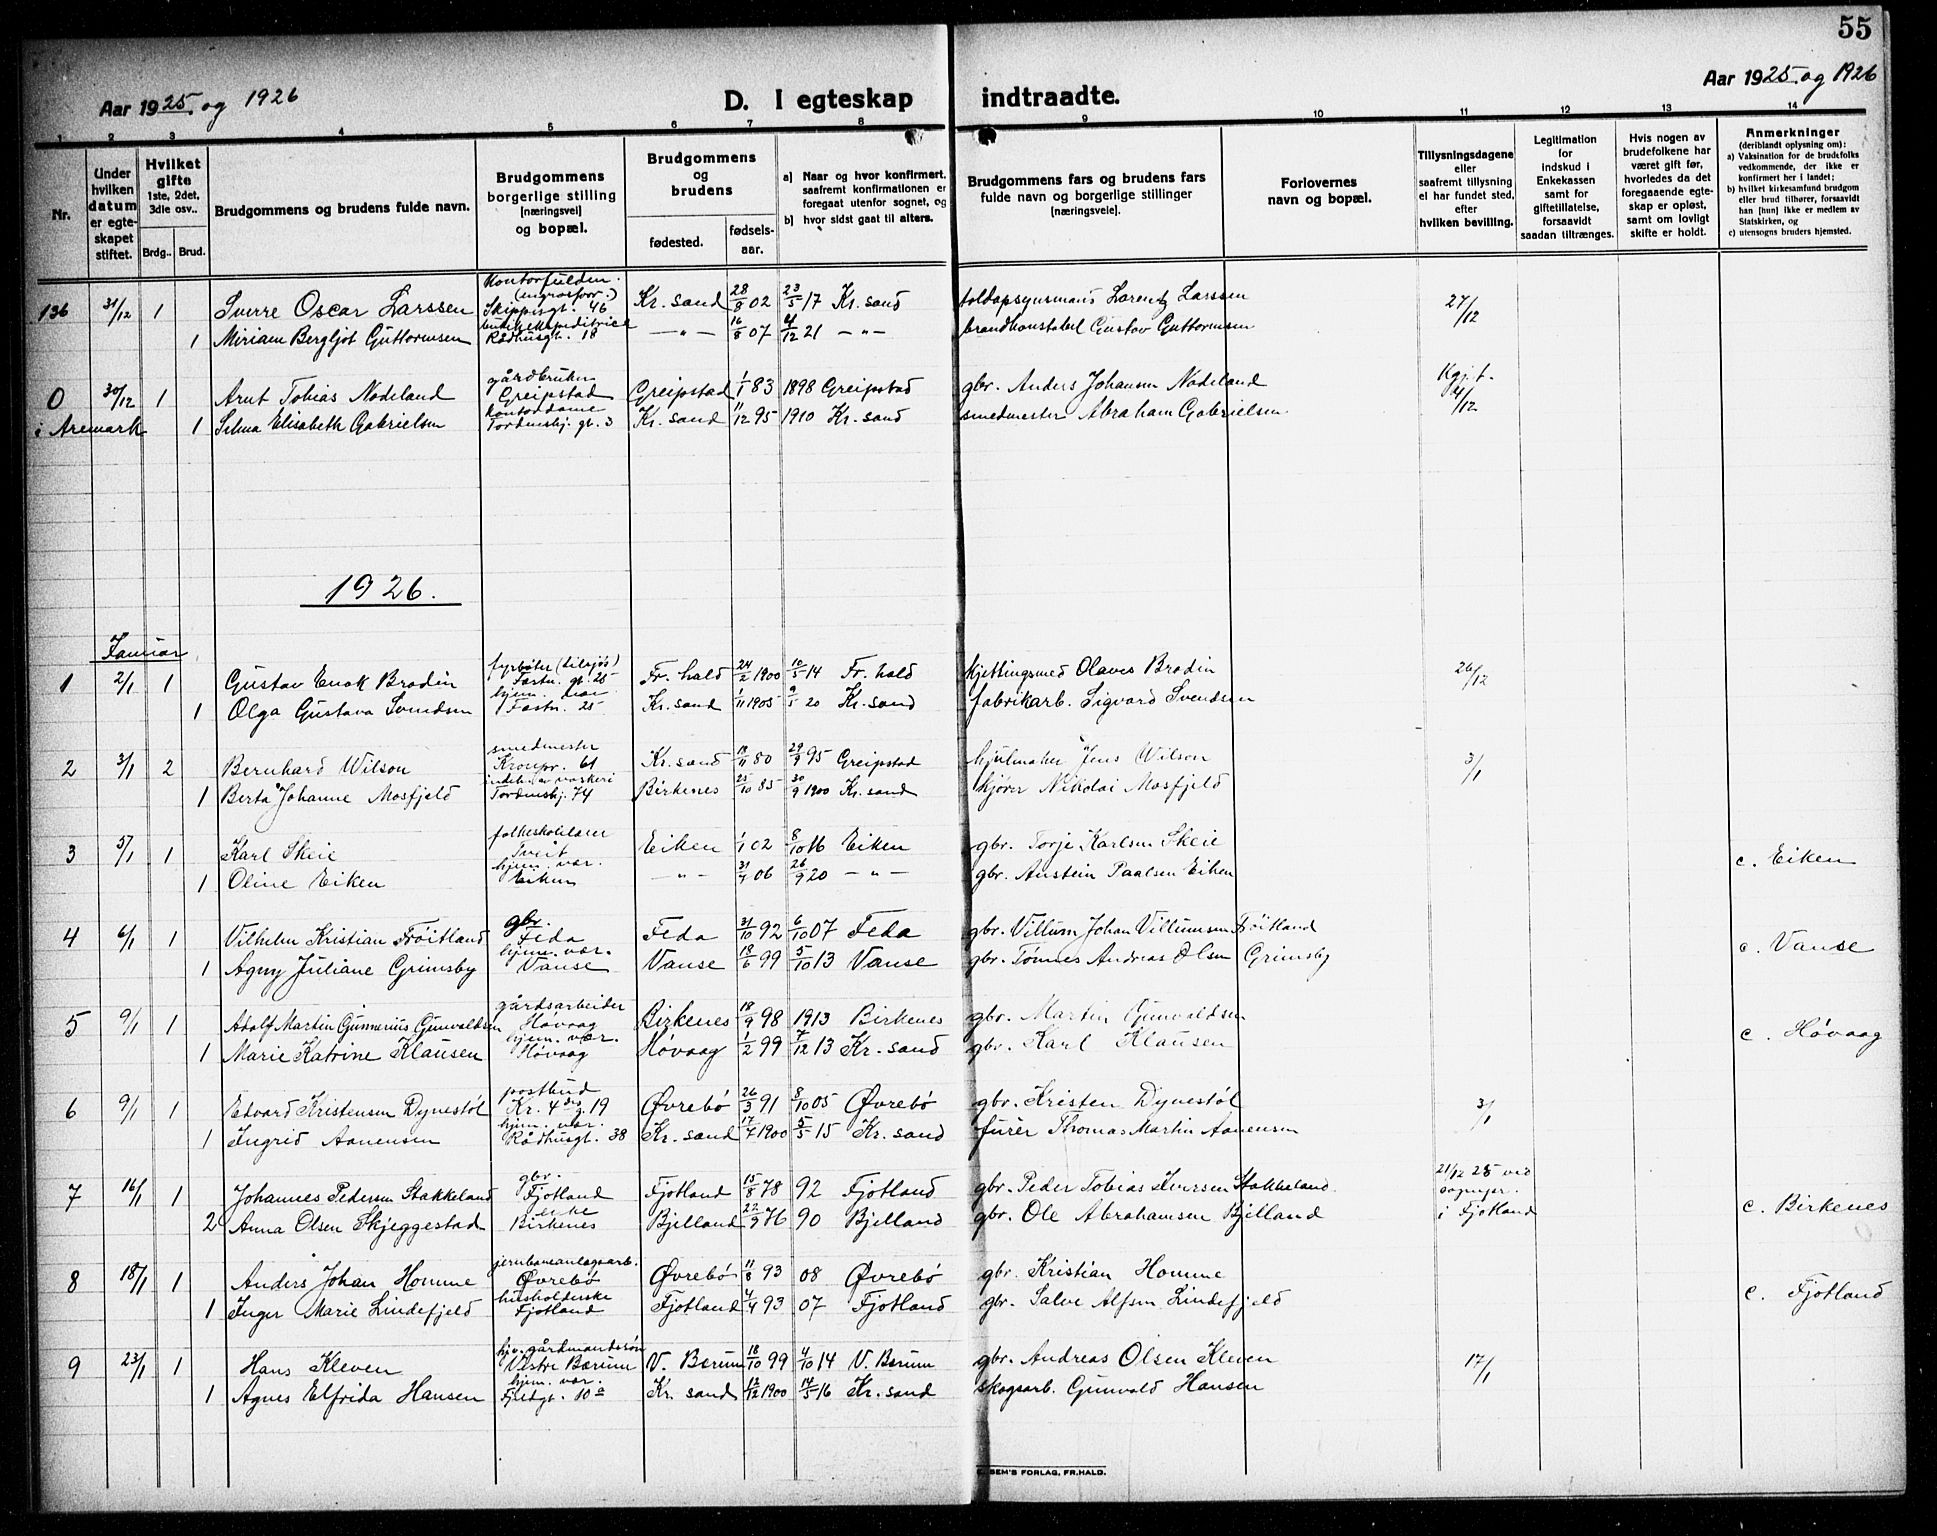 55
Aar 1925 og 1926
D. I egteskap indtraadte.
Aar 1925 og 1926
1 2 3 4 5 6 7 8 9 10 11 12 13 14
Nr.
Under hvilken datum er egteskapet stiftet.
Hvilket gifte 1ste, 2det, 3die osv..
Brdg.. Brud.
Brudgommens og brudens fulde navn.
Brudgommens borgerlige stilling [næringsvei] og bopæl.
Brudgommens og brudens
fødested. fødselsaar.
a) Naar og hvor konfirmert, saafremt konfirmationen er foregaat utenfor sognet, og
b) hvor sidst gaat til alters.
Brudgommens fars og brudens fars fulde navn og borgerlige stillinger [næringsvei].
Forlovernes navn og bopæl.
Tillysningsdagene eller saafremt tillysning ei har fundet sted, efter hvilken bevilling.
Legitimation for indskud i Enkekassen samt for giftetillatelse, forsaavidt saadan tiltrænges.
Hvis nogen av brudefolkene har været gift før, hvorledes da det foregaaende egteskap er opløst, samt om lovligt skifte er holdt.
Anmerkninger (deriblandt oplysning om):
a) Vaksination for de brudefolks vedkommende, der ikke er konfirmert her i landet;
b) hvilket kirkesamfund brudgom eller brud tilhører, forsaavidt han [hun] ikke er medlem av Statskirken, og
c) utensogns bruders hjemsted.
136 31/12 1 Sverre Oscar Larssen Skippergt. 46 Kr.sand 28/8 02 23/5 17 Kr. sand toldopsynsmand Lorentz Larssen 27/12
1 Miriam Bergljot Guttormsen Rådhusgt. 18 —"— 16/8 07 4/12 21 —"— brandkonstabel Gustav Guttormsen
0 30/12 1 Arnt Tobias Nodeland gårdbruker Greipstad Greipstad 1/1 83 1898 Greipstad gbr. Anders Johansen Nodeland 4/12
i Aremark 1 Selma Elisabeth Gabrielsen kontordame Tordenskj. gt. 3 Kr. sand 11/12 95 1910 Kr. sand smedmester Abraham Gabrielsen
1926.
Januar
1 2/1 1 Gustav Enok Brodin fyrbøter (tilsjøs) Fastn. gt. 25 Fr. hald 24/2 1900 10/5 14 Fr. hald kjettingsmed Olaves Brodin 26/12
1 Olga Gustava Svendsen hjem. vær. Fastn. 25 Kr. sand 1/11 1905 9/5 20 Kr. sand fabrikarb. Sigvard Svendsen
2 3/1 2 Bernhard Wilson smedmester Kronpr. 61 Kr. sand 19/11 80 29/9 95 Greipstad hjulmaker Jens Wilson 3/1
1 Berta Johanne Mosfjeld Tordenskj. 74 Birkenes 25/10 85 30/9 1900 Kr. sand kjører Nikolai Mosfjeld
3 5/1 1 Karl Skeie folkeskolelærer Tveit Eiken 1/1 02 8/10 16 Eiken gbr. Torje Karlsen Skeie c. Eiken
1 Oline Eiken hjem. vær. Eiken —"— 31/7 06 26/9 20 —"— gbr. Anstein Paalsen Eiken
4 6/1 1 Vilhelm Kristian Frøitland gbr. Feda Feda 31/10 92 6/10 07 Feda gbr. Villum Johan Villumsen Frøitland c. Vanse
1 Agny Juliane Grimsby hjem. vær. Vanse Vanse 18/6 99 5/10 13 Vanse gbr. Tønnes Andreas Olsen Grimsby
5 9/1 1 Adolf Martin Gunnerius Gunvaldsen gårdsarbeider Høvaag Birkenes 18/9 98 1913 Birkenes gbr. Martin Gunvaldsen c. Høvaag
1 Marie Katrine Klausen hjem. vær. Høvaag Høvaag 1/2 99 7/12 13 Kr. sand gbr. Karl Klausen
6 9/1 1 Edvard Kristensen Dynestøl postbud Kr. 4 des g. 19 Øvrebø 26/3 91 8/10 05 Øvrebø gbr. Kristen Dynestøl 3/1
1 Ingrid Aanensen hjem. vær. Rådhusgt. 38 Kr. sand 17/7 1900 5/5 15 Kr. sand furer Thomas Martin Aanensen
7 16/1 1 Johannes Pedersen Stakkeland gbr. Fjotland Fjotland 15/8 78 92 Fjotland gbr. Peder Tobias Iversen Stakkeland 21/12 25 ved sognepr. i Fjotland c. Birkenes
2 Anna Olsen Skjeggestad enke Birkenes Bjelland 22/9 76 90 Bjelland gbr. Ole Abrahamsen Bjelland
8 18/1 1 Anders Johan Homme jernbaneanlægsarb. Øvrebø Øvrebø 11/8 93 08 Øvrebø gbr. Kristian Homme c. Fjotland
1 Inger Marie Lindefjeld husholderske Fjotland Fjotland 4/4 93 07 Fjotland gbr. Salve Alfsen Lindefjeld
9 23/1 1 Hans Kleven Vestre Bærum V. Bærum 18/10 99 4/10 14 V. Bærum gbr. Andreas Olsen Kleven 17/1
1 Agnes Elfrida Hansen hjem. vær. Fjeldgt. 10 a Kr. sand 12/12 1900 14/5 16 Kr. sand skogsarb. Gunvald Hansen
SEM'S FORLAG, FR.HALD.